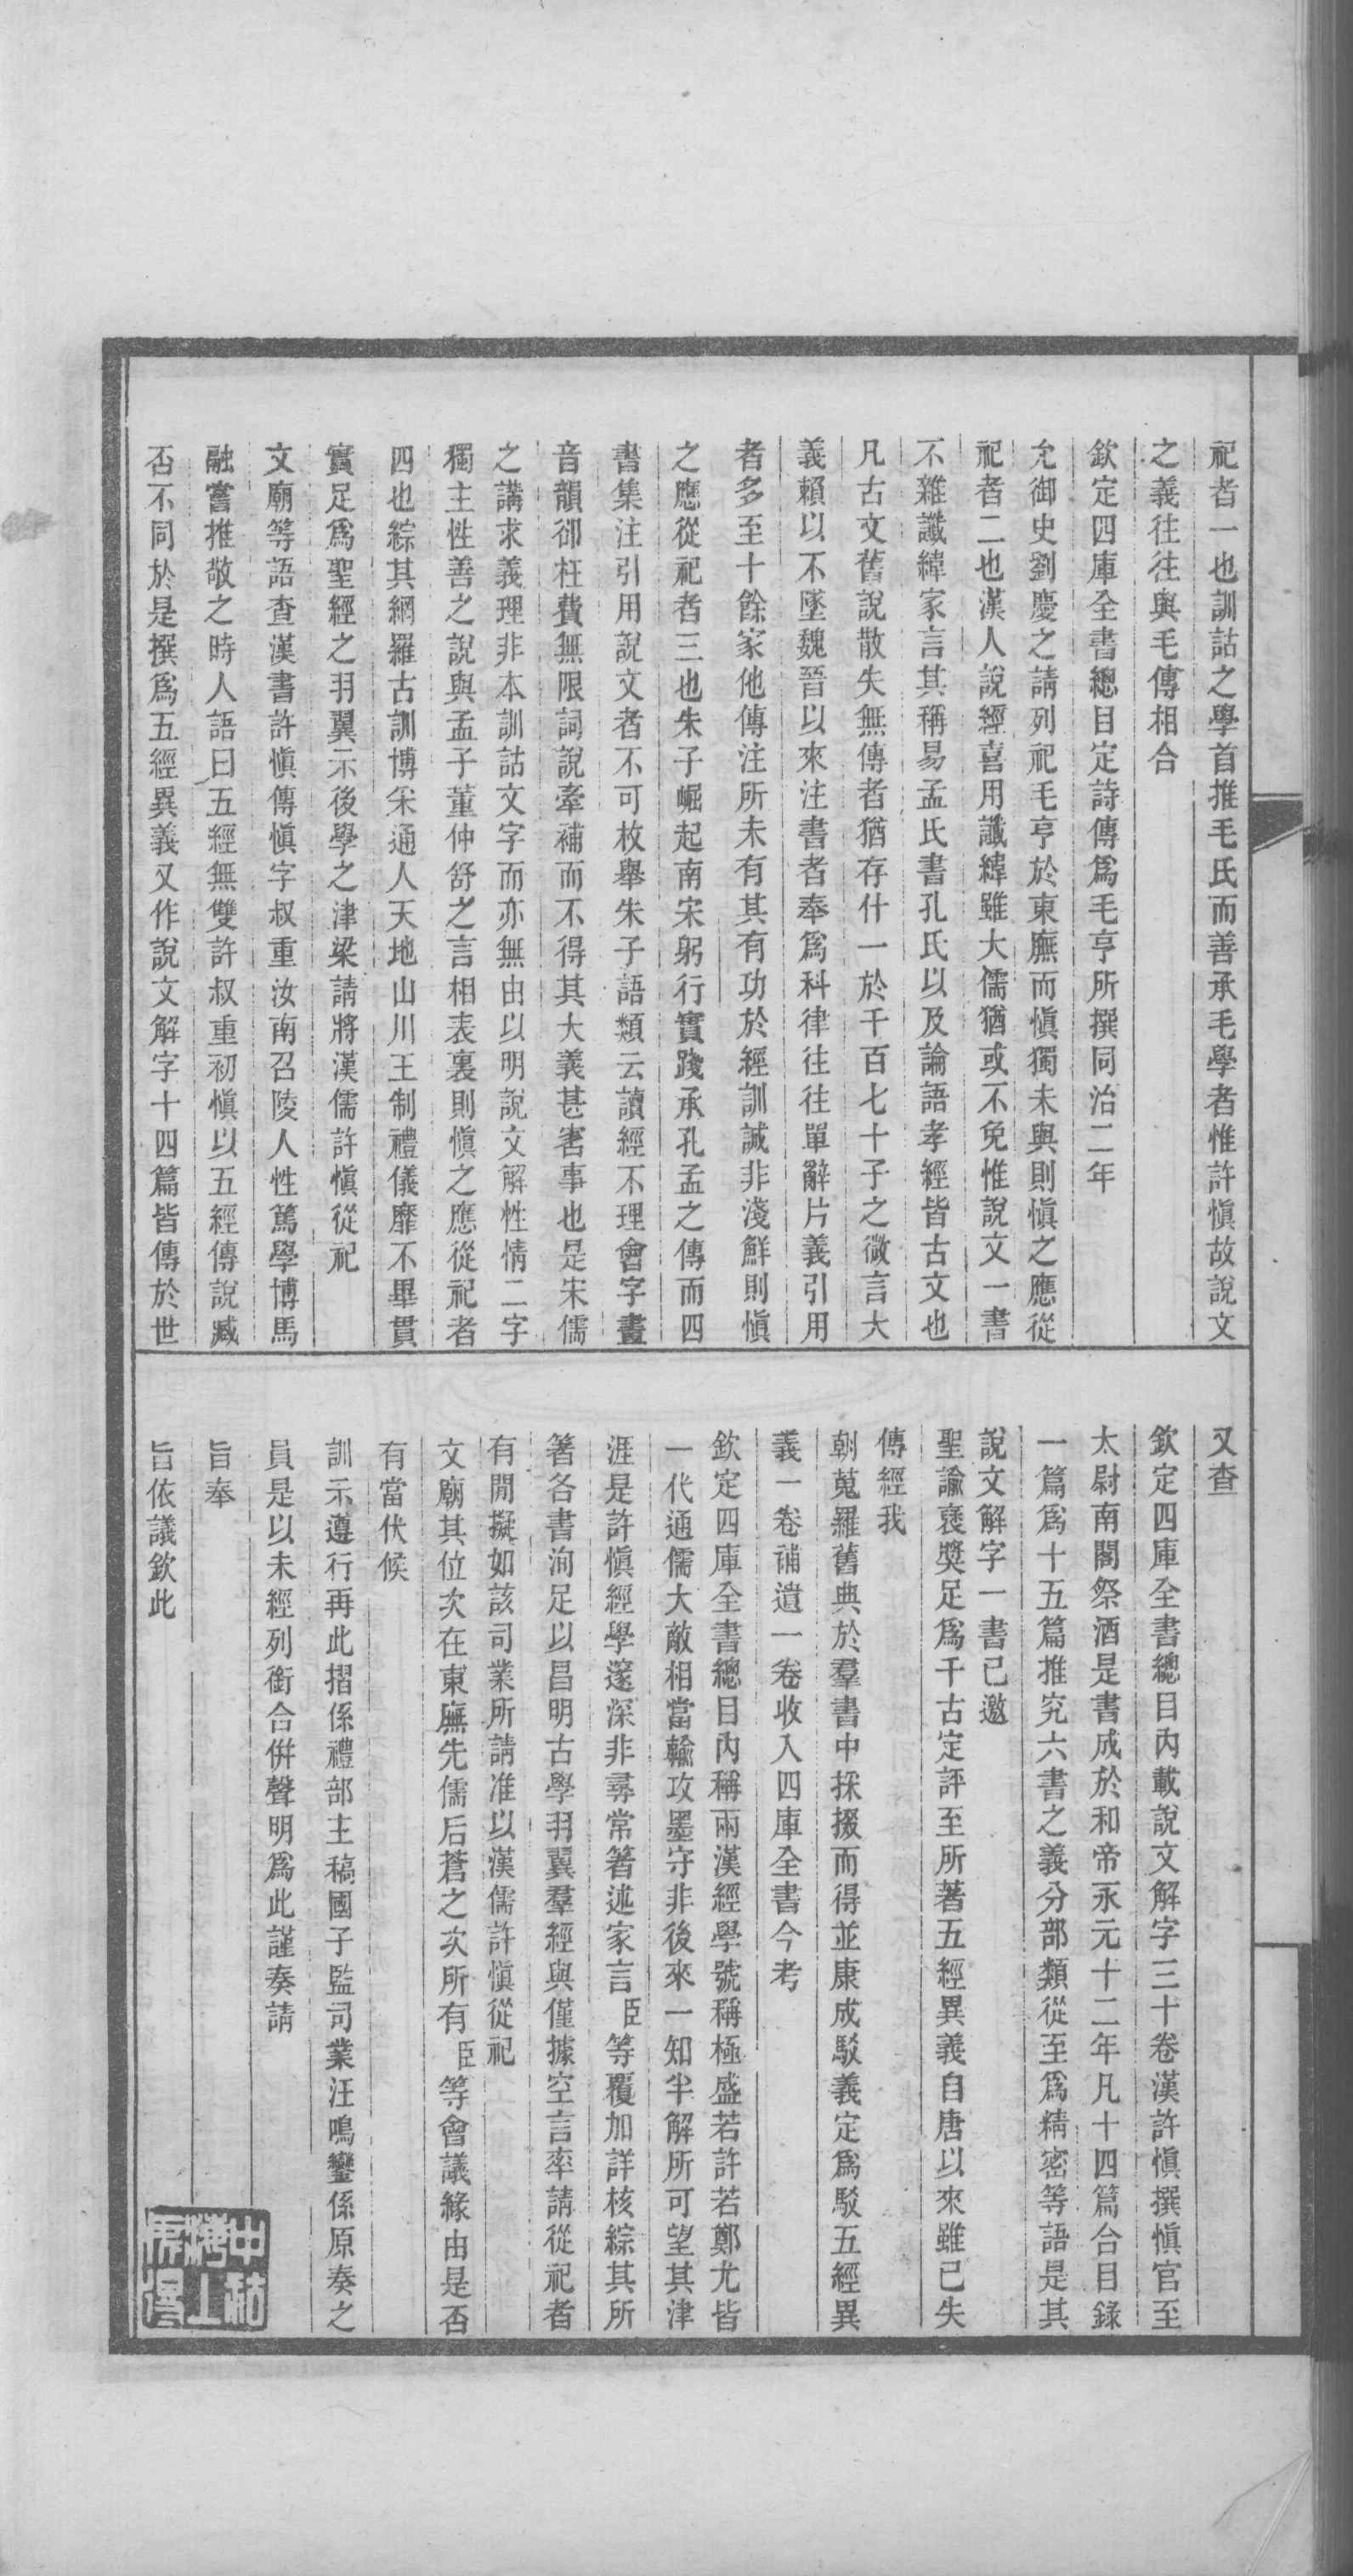 祀者一也訓詁之學首推毛氏而善承毛學者惟許愼故說文
之義往往與毛傳相合
欽定四庫全書總目定詩傳爲毛亨所撰同治二年
允御史劉慶之請列祀毛亨於東廡而愼獨未與則愼之應從
祀者二也漢人說經喜用讖緯雖大儒猶或不免惟說文一書
不雜讖緯家言其稱易孟氏書孔氏以及論語孝經皆古文也
凡古文舊說散失無傳者猶存什一於千百七十子之微言大
義賴以不墜魏晉以來注書者奉爲科律往往單辭片義引用
者多至十餘家他傳注所未有其有功於經訓誠非淺鮮則愼
之應從祀者三也朱子崛起南宋躬行實踐承孔孟之傳而四
書集注引用說文者不可枚舉朱子語類云讀經不理會字畫
音韻卻枉費無限詞說牽補而不得其大義甚害事也是宋儒
之講求義理非本訓詁文字而亦無由以明說文解性情二字
獨主性善之說與孟子董仲舒之言相表裏則愼之應從祀者
四也綜其網羅古訓博采通人天地山川王制禮儀靡不畢貫
實足爲聖經之羽翼示後學之津梁請將漢儒許愼從祀
文廟等語查漢書許愼傳愼字叔重汝南召陵人性篤學博馬
融嘗推敬之時人語曰五經無雙許叔重初愼以五經傳說臧
否不同於是撰爲五經異義又作說文解字十四篇皆傳於世
又查
欽定四庫全書總目內載說文解字三十卷漢許愼撰愼官至
太尉南閣祭酒是書成於和帝永元十二年凡十四篇合目錄
一篇爲十五篇推究六書之義分部類從至爲精密等語是其
說文解字一書已邀
聖諭褒奬足爲千古定評至所著五經異義自唐以來雖已失
傳經我
朝蒐羅舊典於羣書中採掇而得並康成駁義定爲駁五經異
義一卷補遺一卷收入四庫全書今考
欽定四庫全書總目內稱兩漢經學號稱極盛若許若鄭尤皆
一代通儒大敵相當輸攻墨守非後來一知半解所可望其津
涯是許愼經學邃深非尋常著述家言臣等覆加詳核綜其所
著各書洵足以昌明古學羽翼羣經與僅據空言率請從祀者
有閒擬如該司業所請准以漢儒許愼從祀
文廟其位次在東廡先儒后蒼之次所有臣等會議緣由是否
有當伏候
訓示遵行再此摺係禮部主稿國子監司業汪鳴鑾係原奏之
員是以未經列銜合併聲明爲此謹奏請
旨奉
旨依議欽此